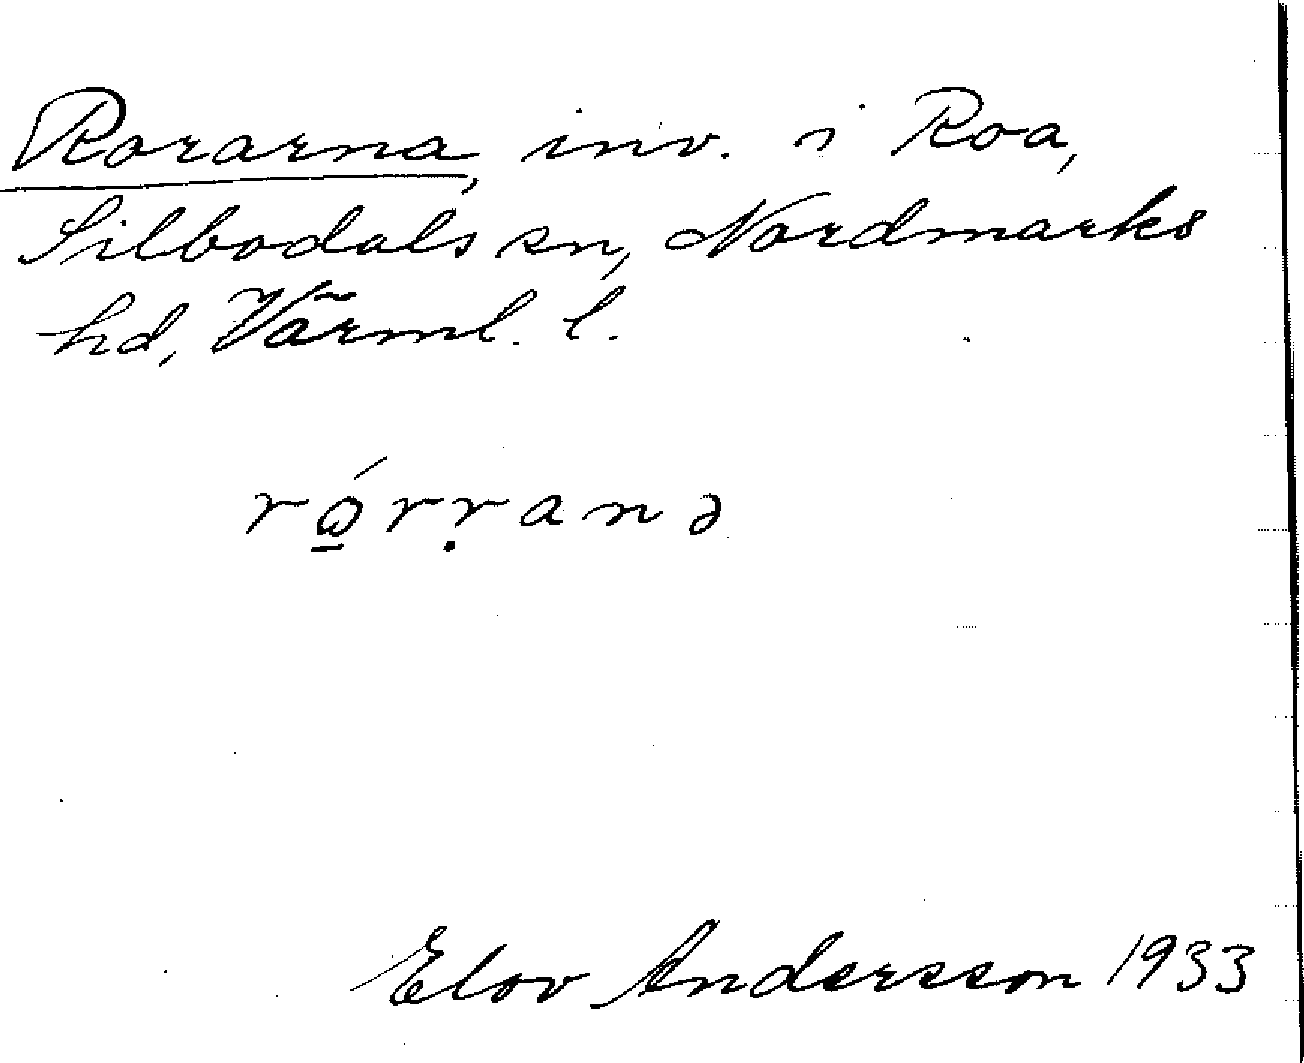 Rorarna, inv. i Roa,
Silbodals sn, Nordmarks
hd, Värml. l.
rǫ̱́rṛanə
Elov Andersson 1933